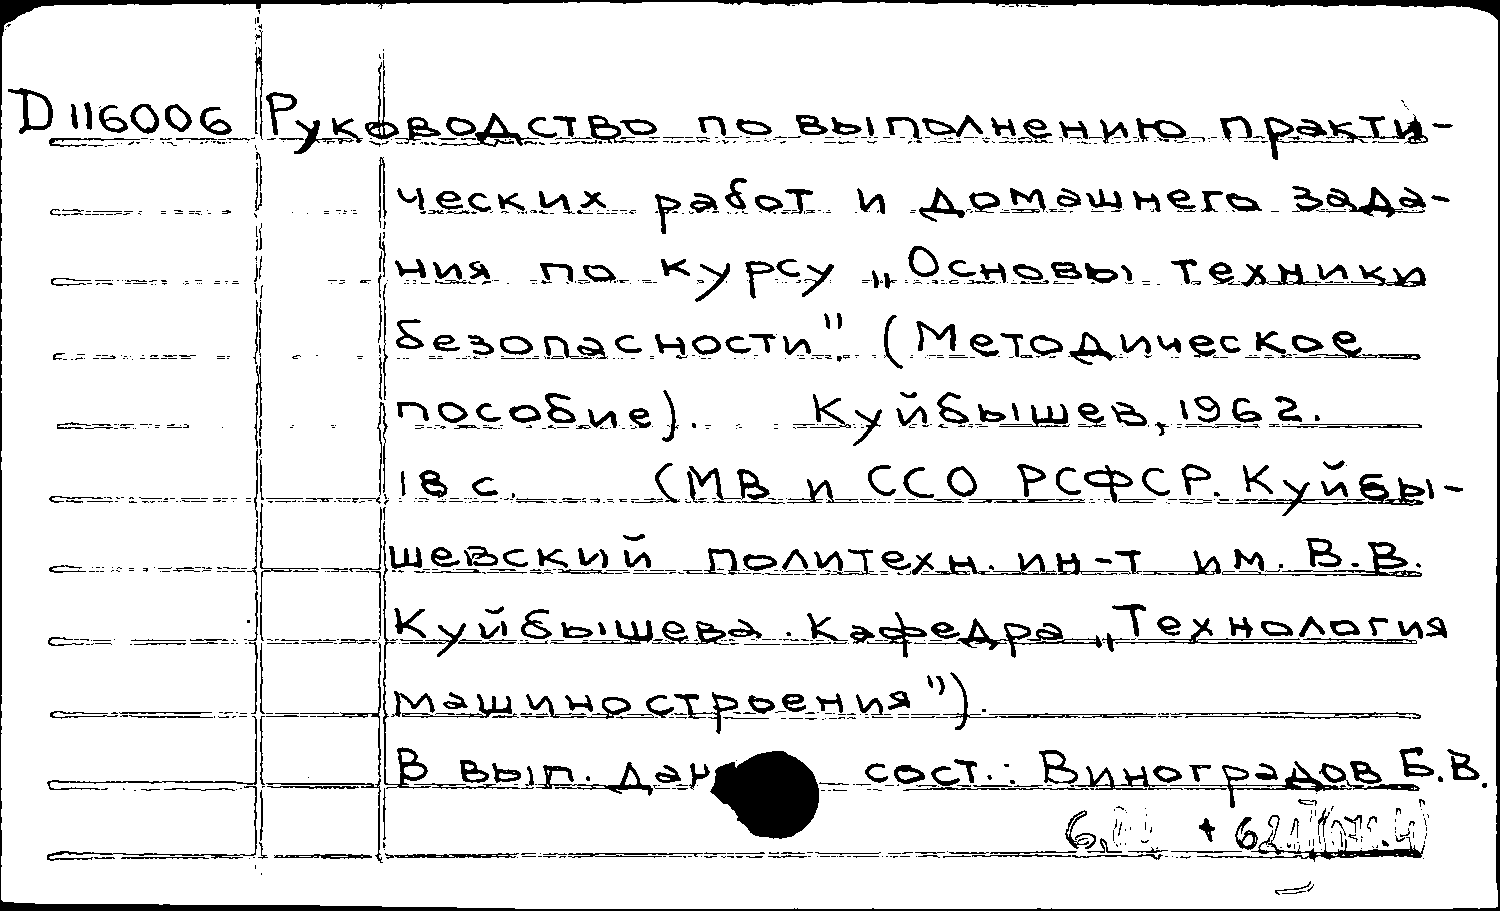 D 116006 Руководство по выполнению практи-
ческих работ и домашнего зада-
ния по курсу „Основы техники
безопасности". (Методическое
пособие). Куйбышев, 1962.
18 с. (МВ и ССО РСФСР. Куйбы-
шевский политехн. ин-т им. В.В.
Куйбышева. Кафедра „Технология
машиностроения").
В вып. дан. сост.: Виноградов Б.В.